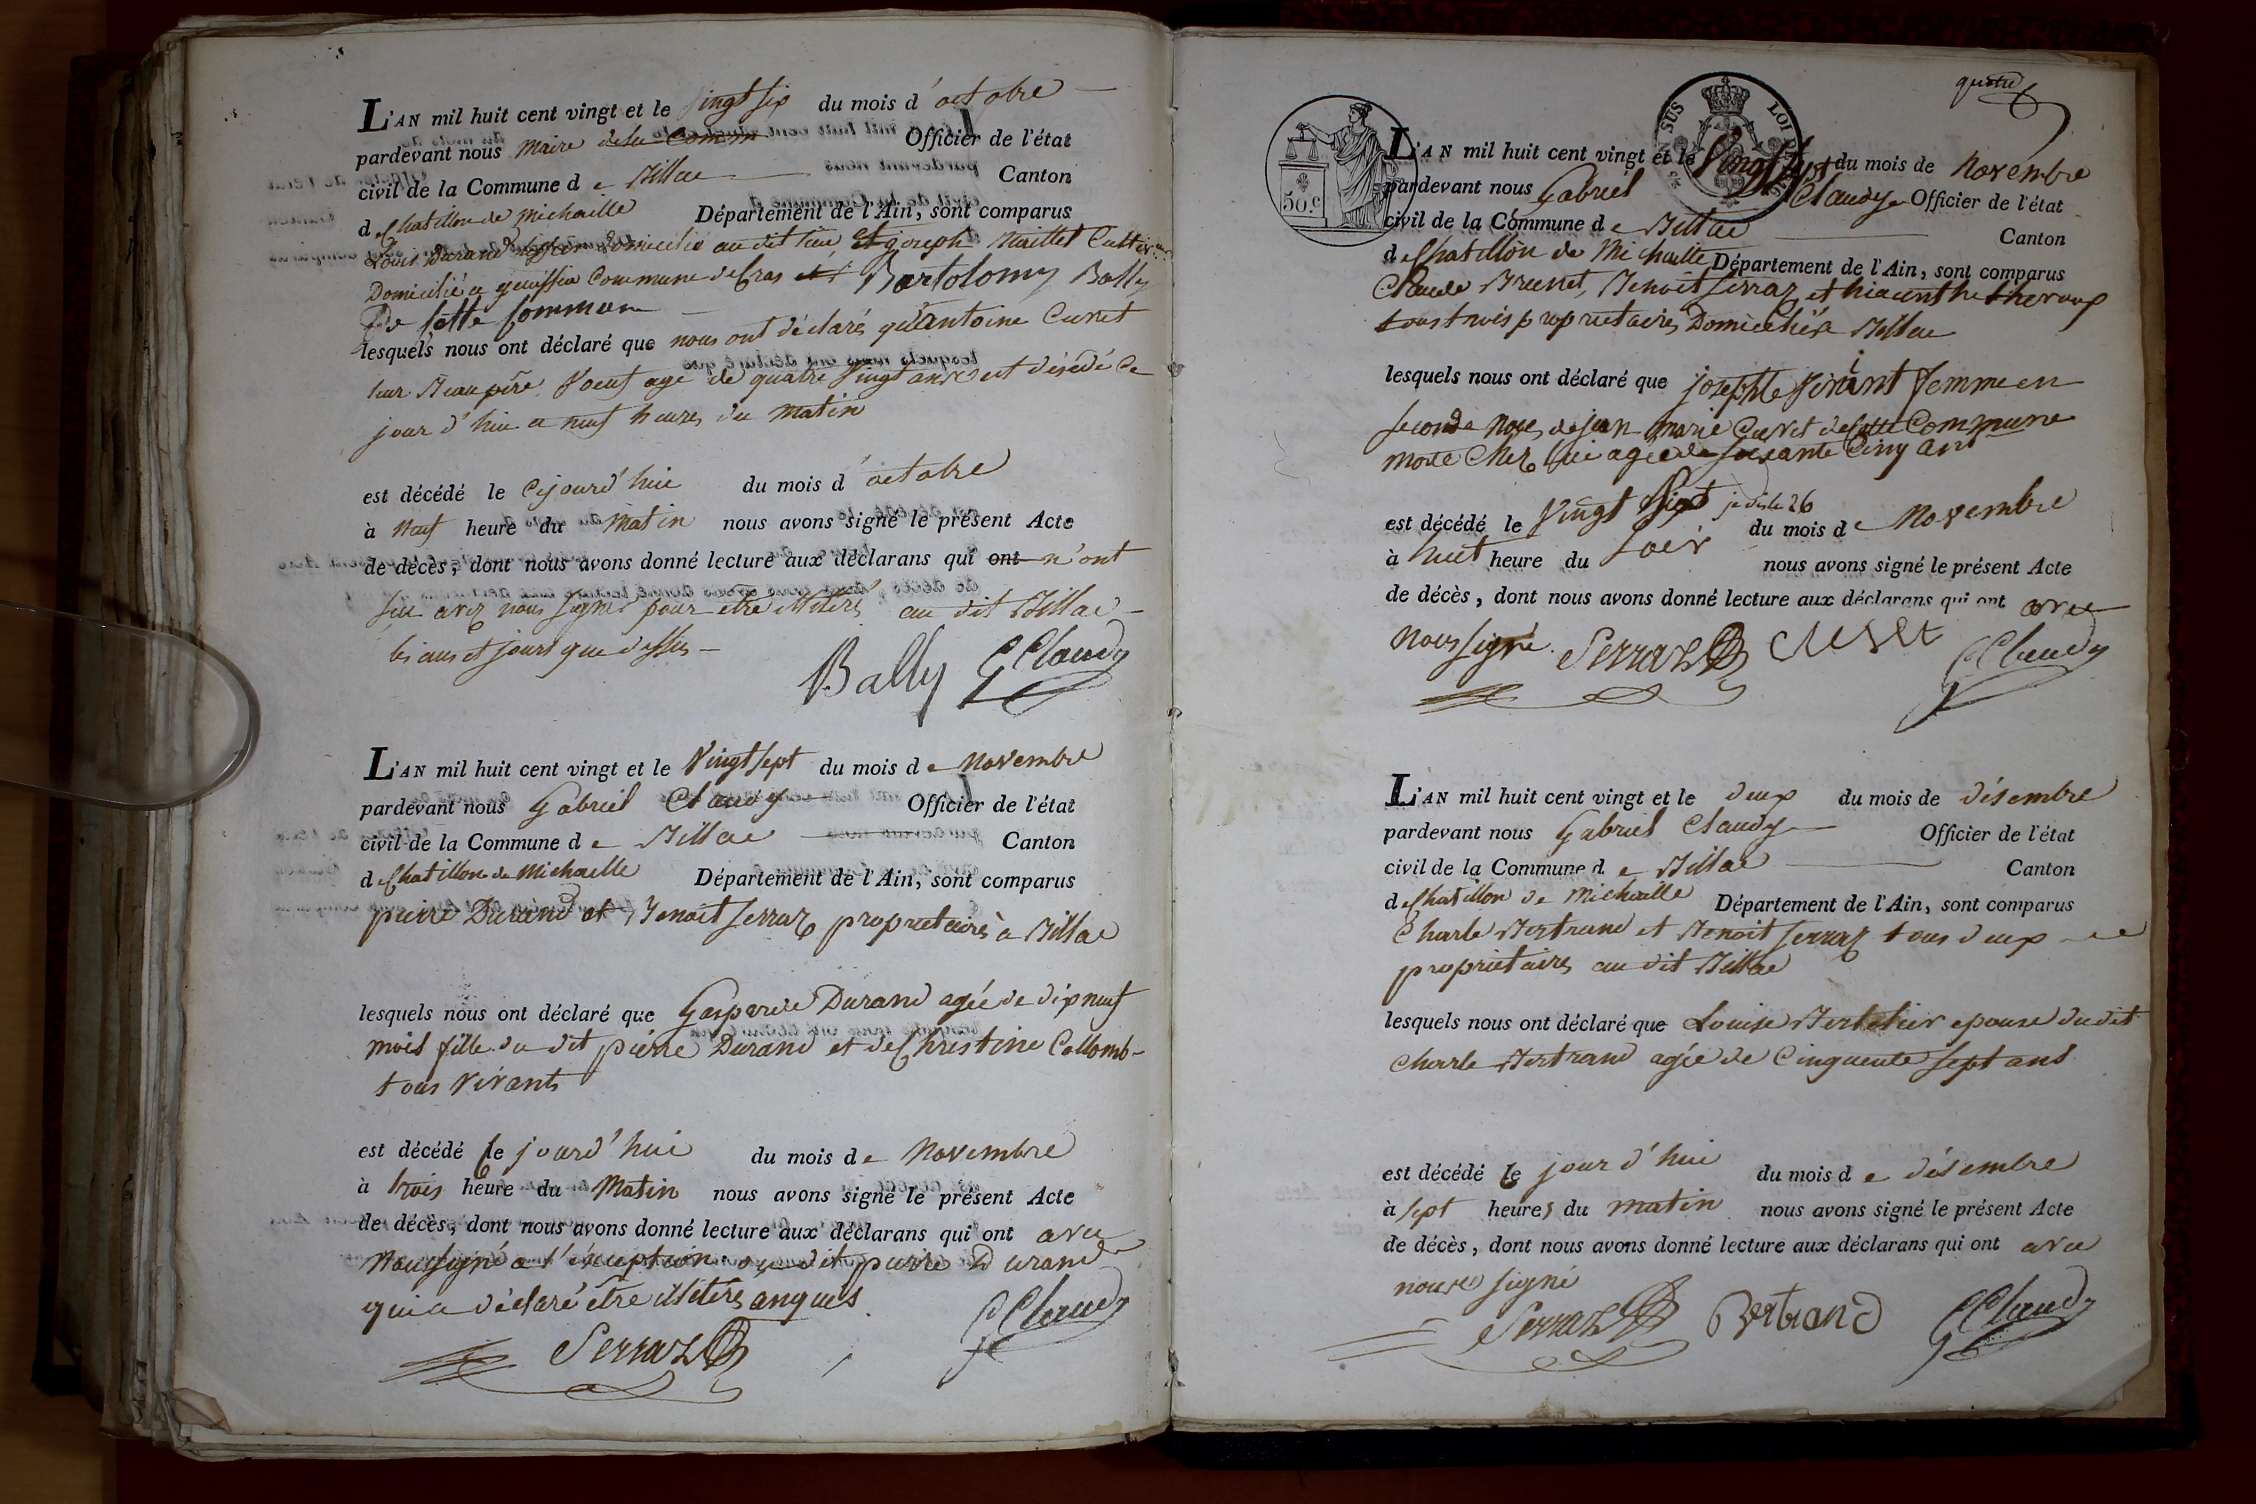 L'AN mil huit cent vingt et le vingt six du mois d'octobre
pardevant nous maire de la Comm Officier de l'état
civil de la Commune de Billiac Canton
de Chatillon de Michaille Département de l'Ain, sont comparus
Louis Durand domicilié au dit lieu et joseph Maillet Cultiv
Domicilié a Commune de Cras et Bartolomy Bally
De sette Commun
lesquels nous ont déclaré que nous ont déclarés qu'antoine Curret
leur Beau père Voeuf agé de quatre Vingt et désédé Ce
jour d'hui a neuf heures du matin
est décédé le Cejourd'hui du mois d'octobre
à Neuf heure du Matin nous avons signé le présent Acte
de décès, dont nous avons donné lecture aux déclarans qui ont n'ont
avez nous signé pour etre au dit Billac
les ans et jours que dessus
Bally G Claudy
L'AN mil huit cent vingt et le Vingt sept du mois de Novembre
pardevant nous Gabriel Claudy Officier de l'état
civil de la Commune de Billac Canton
de Chatillon de Michaille Département de l'Ain, sont comparus
pierre Durand et Benoit Serraz proprietaires à Billac
lesquels nous ont déclaré que Gasparde Durand agée de dix neuf
mois fille du dit pierre Durand et de Christine Collomb
tous vivants
est décédé le jourd'hui du mois de Novembre
à trois heure du Matin nous avons signé le présent Acte
de décès, dont nous avons donné lecture aux déclarans qui ont avec
Nous signé a l'éxception du dit pierre Durand
qui a déclaré être
Serraz G Claudy
SUS LOI
50.c
L'AN mil huit cent vingt et le Vingt sept du mois de Novembre
pardevant nous Gabriel Claudy Officier de l'état
civil de la Commune de Billac Canton
de Chatillon de Michaille Département de l'Ain, sont comparus
Claude Brunet, Benoit Serraz et hiacinthe
tous trois proprietaires Domiciliés a Billac
lesquels nous ont déclaré que josephte femme en
seconde Noces de jean marie Curret de sette Commune
morte Chez lui agée de soixante Cinq ans
est décédé le Vingt Sixt je dis le 26 du mois de Novembre
à huit heure du soir nous avons signé le présent Acte
de décès, dont nous avons donné lecture aux déclarans qui ont avec
Nous signé. Serraz G Claudy
L'AN mil huit cent vingt et le deux du mois de désembre
pardevant nous Gabriel Claudy Officier de l'état
civil de la Commune de Billac Canton
de Chatillon de Michaille Département de l'Ain, sont comparus
Charle Bertrand et Benoit Serraz tous deux
proprietaires au dit Billac
lesquels nous ont déclaré que Louise Bertelier epouse du dit
Charle Bertrand agée de Cinquente sept ans
est décédé le jour d'hui du mois de désembre
à sept heures du matin nous avons signé le présent Acte
de décès, dont nous avons donné lecture aux déclarans qui ont avec
nous signé
Serraz Bertrand G Claudy